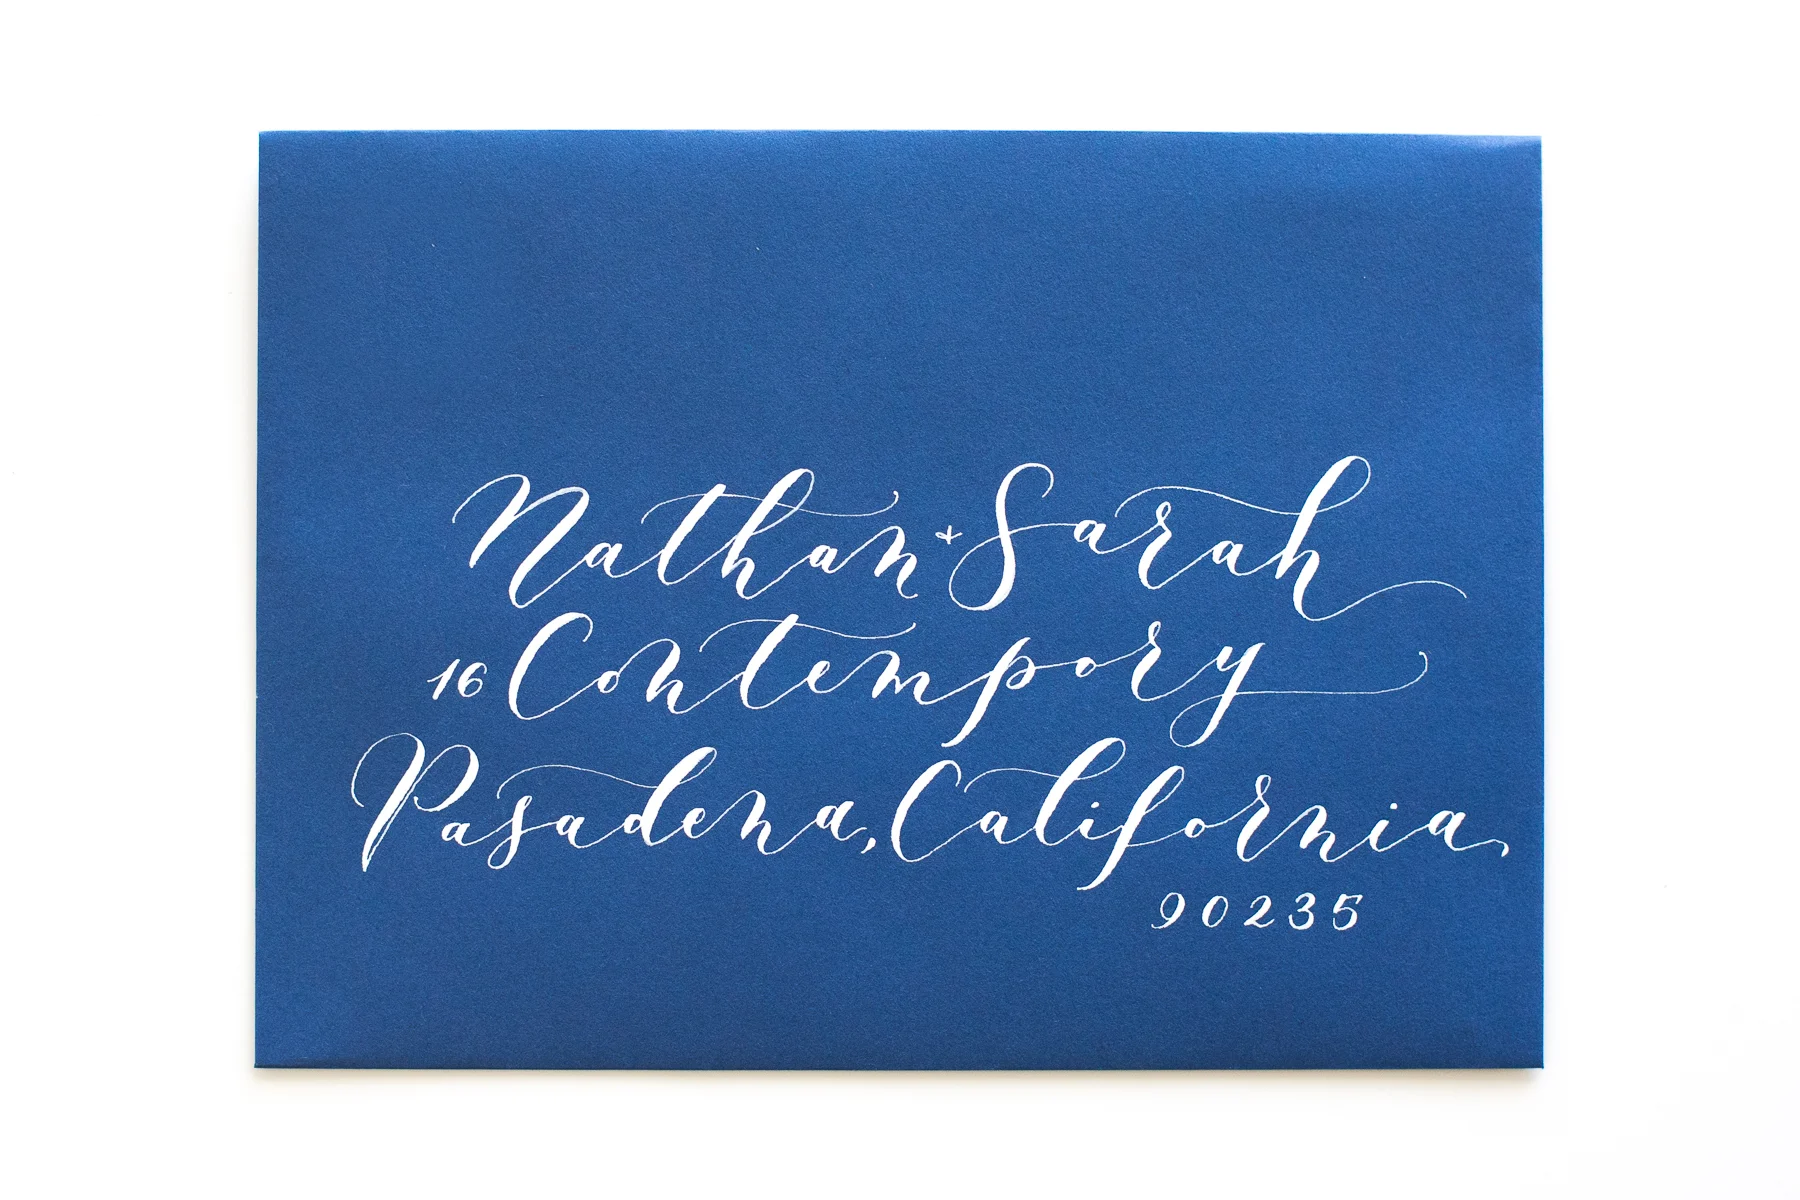 Nathan + Sarah
16 Contempory
Pasadena, California,
90235